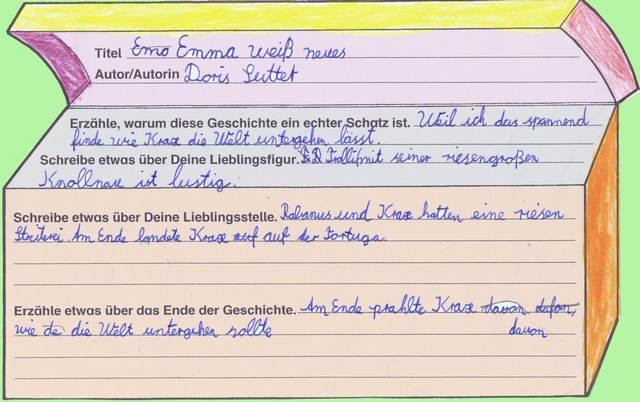 Titel Emo Emma weiß neues
Autor/Autorin Doris
Erzähle, warum diese Geschichte ein echter Schatz ist. Weil ich das spannend
finde wie Krax die Welt untergehen lässt.
Schreibe etwas über Deine Lieblingsfigur. D mit seiner riesengroßen
Knollnase ist lustig.
Schreibe etwas über Deine Lieblingsstelle. Rabanus und Krax hatten eine riesen
Streiterei. Am Ende landete Krax auf auf der Tortuga.
Erzähle etwas über das Ende der Geschichte. Am Ende prahlte Krax davon dafon,
wie de die Welt untergehen sollte davon